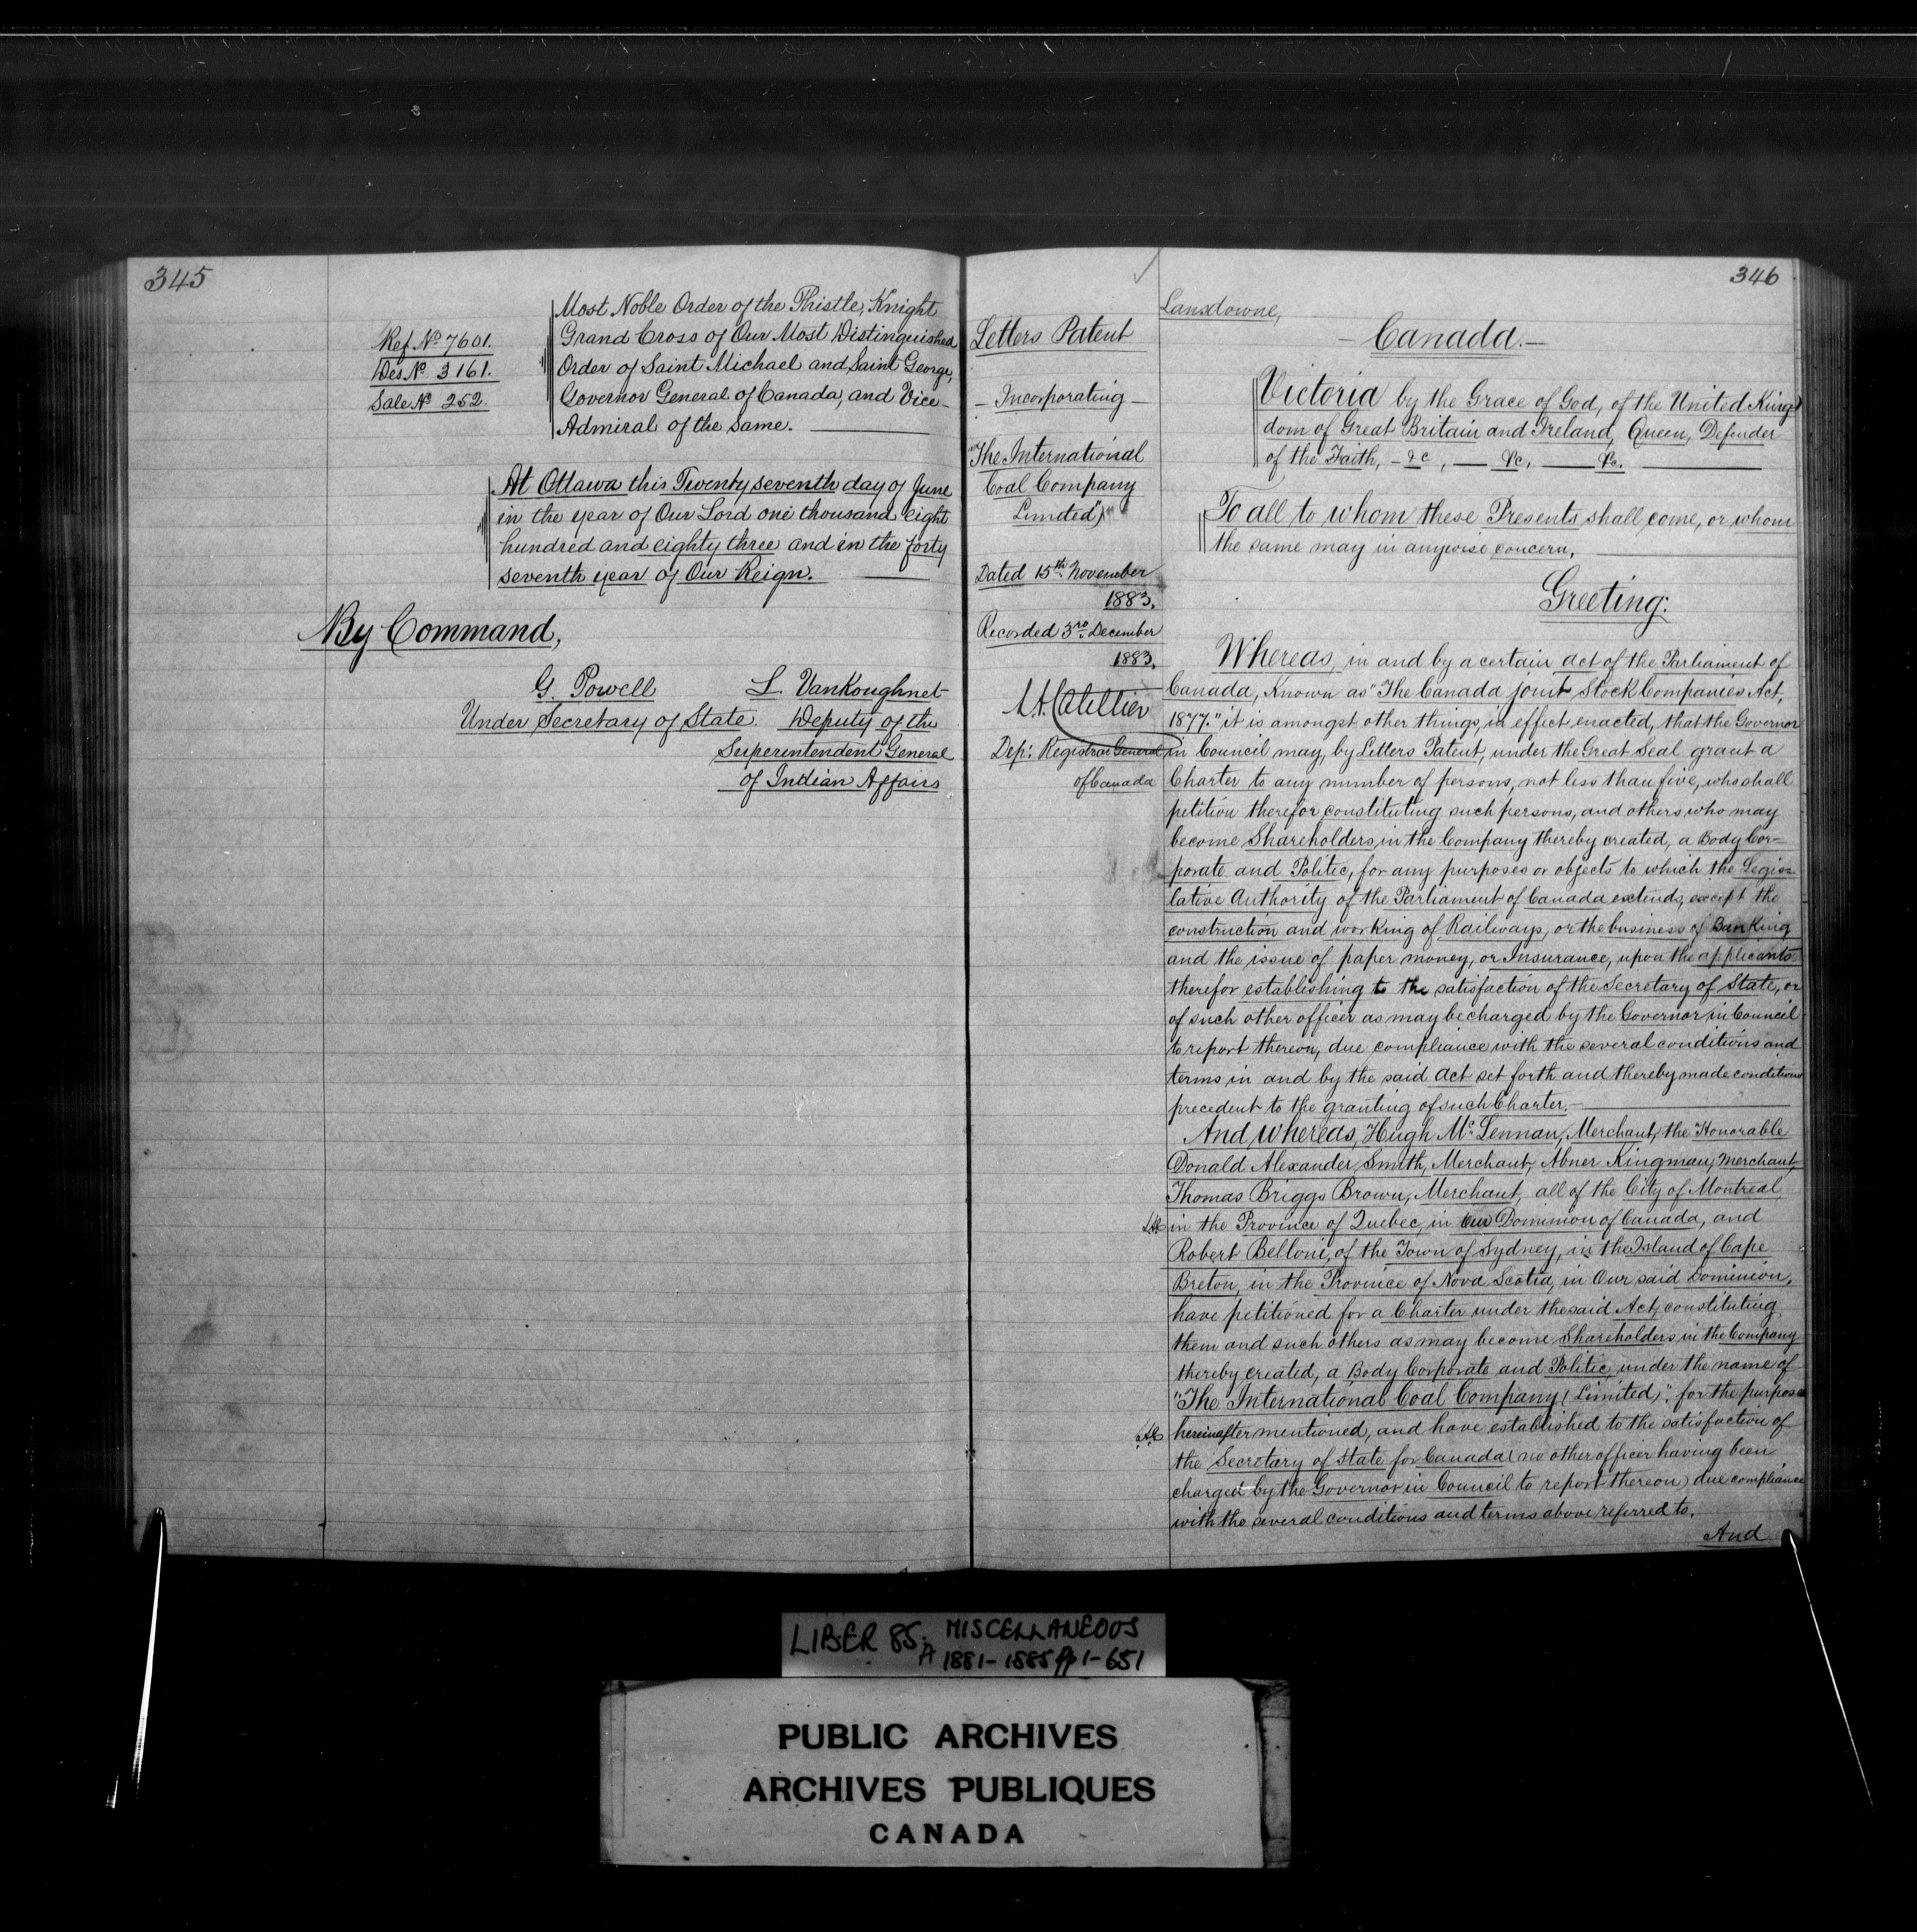 345
Ref. No 7601.
Des No 3161.
Sale No 252.
Most Noble Order of the Thistle, Knight
Grand Cross of Our Most Distinguished
Order of Saint Michael and Saint George,
Governor General of Canada, and Vice-
Admiral of the same.
At Ottawa this Twenty seventh day of June
in the year of Our Lord one thousand eight
hundred and eighty three and in the forty
seventh year of Our Reign.
By Command,
G. Powell
Under Secretary of State.
L. VanKoughnet
Deputy of the
Superintendent General
of Indian Affairs
346
Letters Patent
- Incorporating -
"The International
Coal Company
Limited)"
Dated 15th November
1883.
Recorded 3rd December
1883.
L.A. Catellier
Dep: Registrar General
of Canada
Lansdowne,
- Canada. -
Victoria by the Grace of God, of the United King
dom of Great Britain and Ireland, Queen, Defender
of the Faith, - &c, — &c, — &c.
To all to whom these Presents shall come, or whom
the same may in anywise concern,
Greeting:
Whereas, in and by a certain Act of the Parliament of
Canada, Known as "The Canada joint Stock Companies Act,
1877." it is amongst other things, in effect enacted, that the Governor
in Council may, by Letters Patent, under the Great Seal grant a
Charter to any number of persons, not less than five, who shall
petition therefor constituting such persons, and others who may
become Shareholders in the Company thereby created, a Body Cor-
porate and Politic, for any purposes or objects to which the Legis=
lative Authority of the Parliament of Canada extends, except the
construction and working of Railways, or the business of Banking
and the issue of paper money, or Insurance, upon the applicants
therefor establishing to the satisfaction of the Secretary of State, or
of such other officer as may be charged by the Governor in Council
to report thereon, due compliance with the several conditions and
terms in and by the said Act set forth and thereby made conditions
precedent to the granting of such Charter.-
And Whereas, Hugh Mc Lennan, Merchant, the Honorable
Donald Alexander Smith, Merchant, Abner Kingman, Merchant
Thomas Briggs Brown, Merchant, all of the City of Montreal
LAC in the Province of Quebec, in Our Dominion of Canada, and
Robert Belloni, of the Town of Sydney, in the Island of Cape
Breton, in the Province of Nova Scotia, in Our said Dominion,
have petitioned for a Charter under the said Act, constituting
them and such others as may become Shareholders in the Company
thereby created, a Body Corporate and Politic, under the name of
"The International Coal Company (Limited)", for the purpose
LAC hereinafter mentioned, and have established to the satisfaction of
the Secretary of State for Canada (no other officer having been
charged by the Governor in Council to report thereon) due compliance
with the several conditions and terms above referred to.
And
LIBER 85: MISCELLANEOUS
A 1881-1885 pp 1-651
PUBLIC ARCHIVES
ARCHIVES PUBLIQUES
CANADA